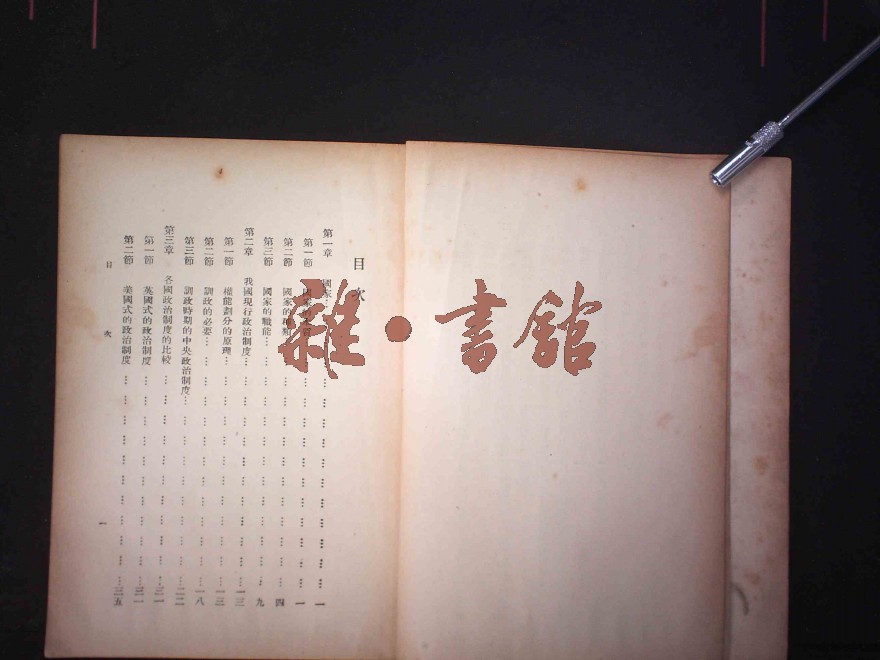 目次
第一章 國家…一
第一節 國家的…一
第二節 國家的種類…四
第三節 國家的職能…九
第二章 我國現行政治制度…一三
第一節 權能劃分的原理…一三
第二節 訓政的必要…一八
第三節 訓政時期的中央政治制度…二二
第三章 各國政治制度的比較…三一
第一節 英國式的政治制度…三一
第二節 美國式的政治制度…三五
目次
一
雜·書館